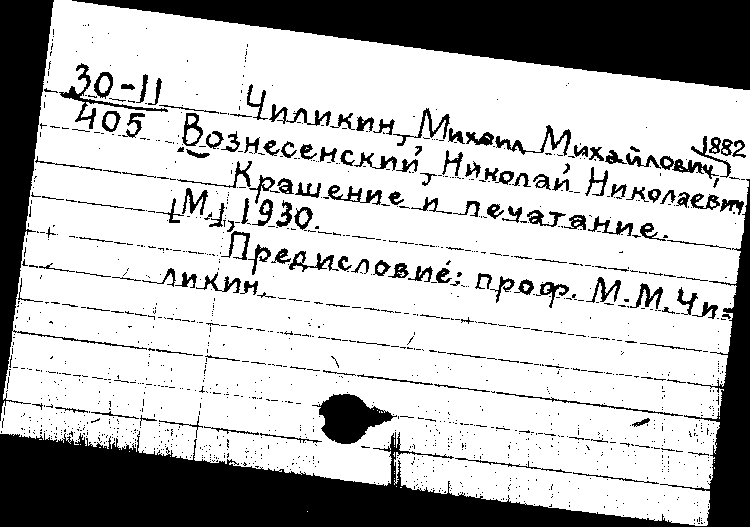 30-11
405
Чиликин, Михаил Михайлович, 1882
Вознесенский, Николай Николаевич
Крашение и печатание.
[М.], 1930.
Предисловие: проф. М.М. Чи=
ликин.